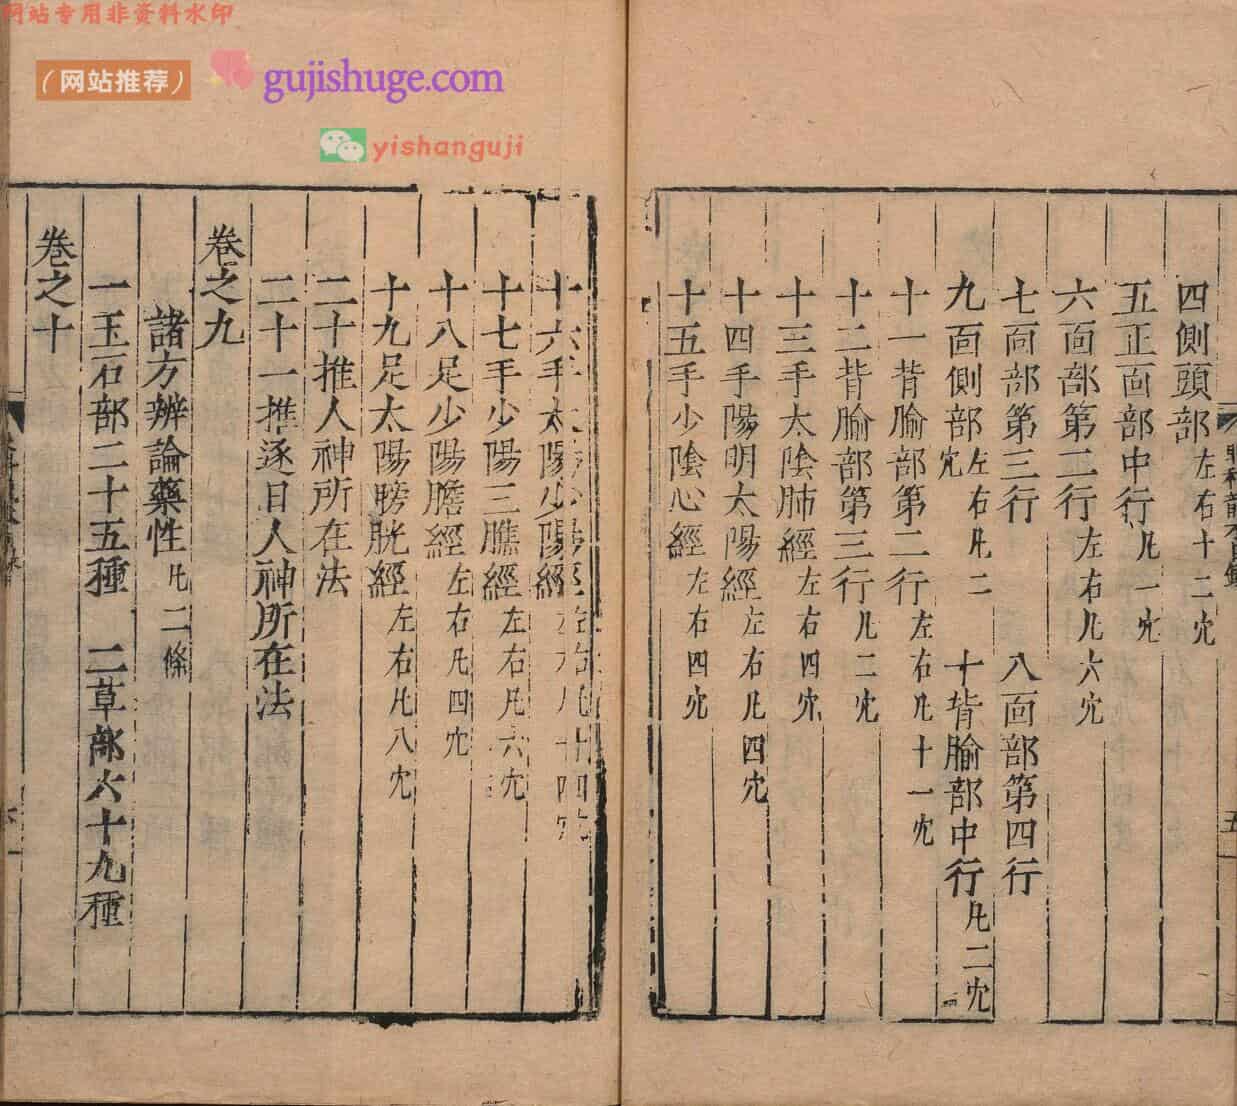 网站专用非资料水印
（网站推荐）
gujishuge.com
yishanguji
四側頭部左右十二穴
五正面部中行凡一穴
六面部第二行左右凡六穴
七面部第三行 八面部第四行
九面側部左右凡二穴 十背腧部中行凡二穴
十一背腧部第二行左右凡十一穴
十二背腧部第三行凡二穴
十三手太陰肺經左右四穴
十四手陽明太陽經左右凡四穴
十五手少陰心經左右四穴
十六手太陽少陽經左右凡十四穴
十七手少陽三膲經左右凡六穴
十八足少陽膽經左右凡四穴
十九足太陽膀胱經左右凡八穴
二十推人神所在法
二十一推逐日人神所在法
卷之九
諸方辨論藥性凡二條
一玉石部二十五種 二草部六十九種
卷之十